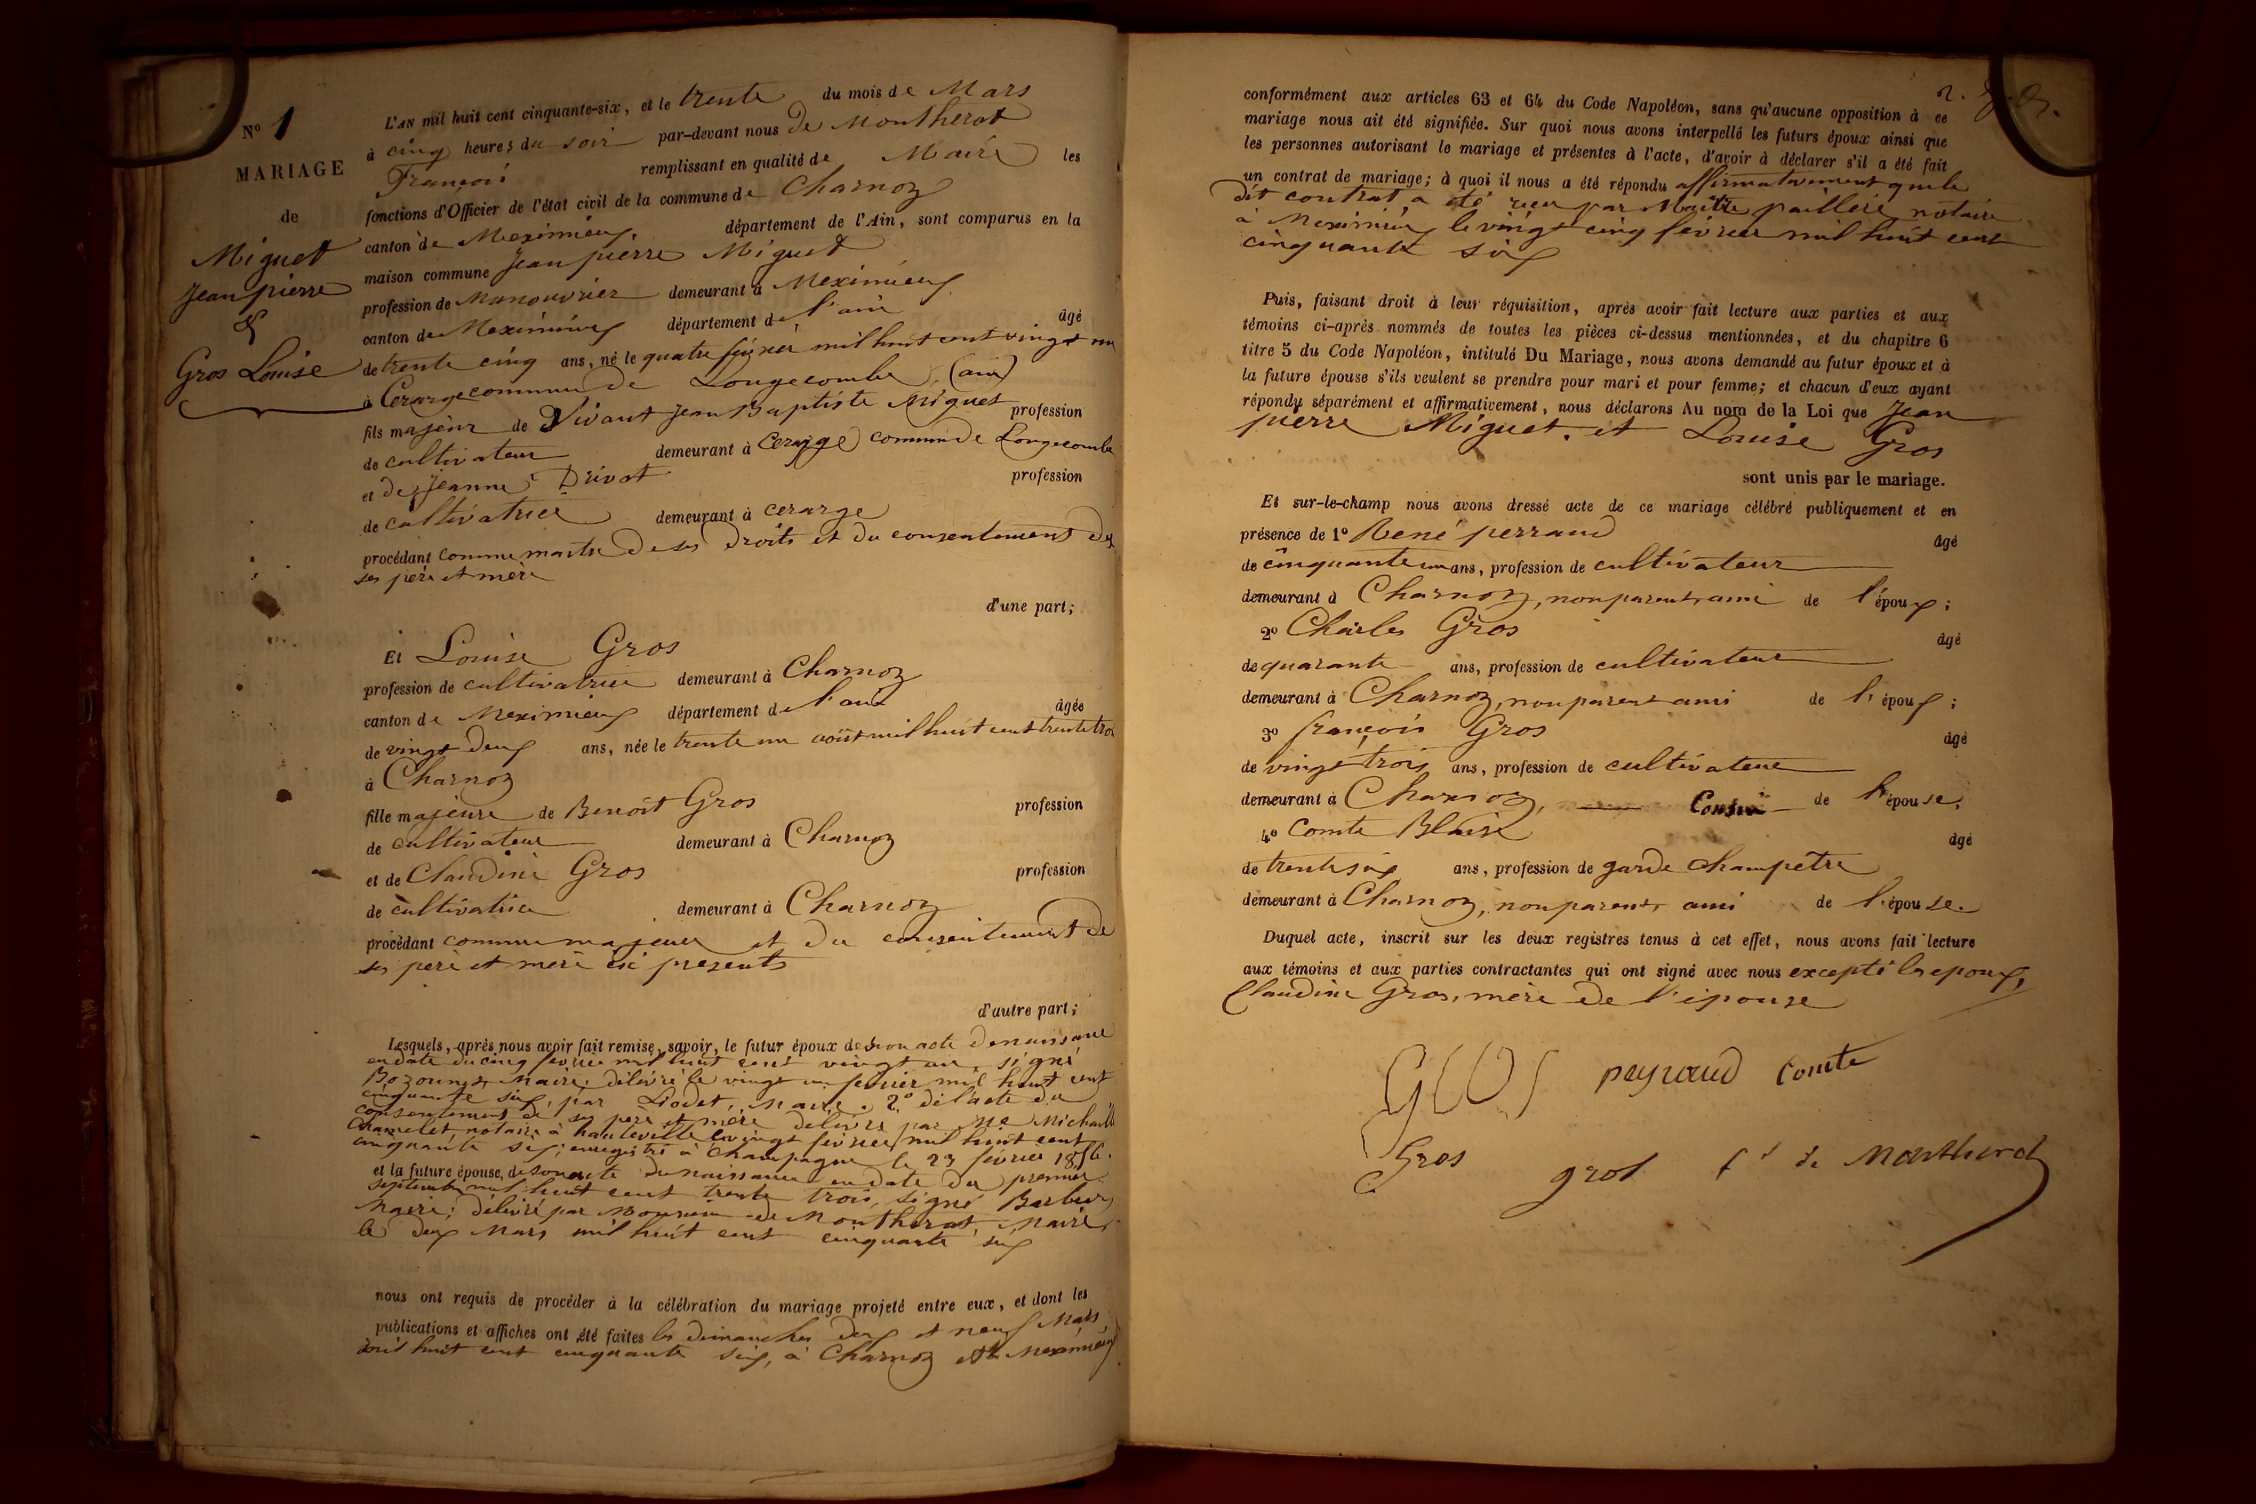 N° 1
MARIAGE
de
Miguet
Jean pierre
&
Gros Louise
L'AN mil huit cent cinquante-six, et le trente du mois de Mars
à cinq heures du soir par-devant nous De Montherot
François remplissant en qualité de Maire les
fonctions d'Officier de l'état civil de la commune de Charnoz
canton de Meximieux, département de l'Ain, sont comparus en la
maison commune Jean pierre Miguet
profession de Manouvrier demeurant à Meximieux
canton de Meximieux département de l'ain âgé
de trente cinq ans, né le quatre février mil huit cent vingt un
à Cerarge commune de Longecombe (ain)
fils majeur de Vivant Jean Baptiste Miguet profession
de cultivateur demeurant à Cerarge commune de Longecombe
et de Jeanne Drivot profession
de cultivatrice demeurant à cerarge
procédant comme maitre de ses droits et du consentement de
ses père et mère
d'une part;
Et Louise Gros
profession de cultivatrice demeurant à Charnoz
canton de Meximieux département de l'ain âgée
de vingt deux ans, née le trente un août mil huit cent trente trois
à Charnoz
fille majeure de Benoit Gros profession
de cultivateur demeurant à Charnoz
et de Claudine Gros profession
de cultivatrice demeurant à Charnoz
procédant comme majeure et du consentement de
ses père et mère ici presents
d'autre part;
Lesquels, après nous avoir fait remise, savoir, le futur époux de son acte de naissance
en date du cinq février mil huit cent vingt un, signé
Maire, délivré le vingt un février mil huit cent
cinquante six, par Liodet, Maire. 2° de l'acte du
consentement de ses père et mère délivré par Me Michaille
Chamelet notaire à hauteville le vingt février mil huit cent
cinquante six; enregistré à Champagne le 23 février 1856.
et la future épouse, de son acte de naissance en date du premier
septembre mil huit cent trente trois, signé
Maire; délivré par Monsieur de Montherot, Maire,
le deux Mars mil huit cent cinquante six
nous ont requis de procéder à la célébration du mariage projeté entre eux, et dont les
publications et affiches ont été faites les dimanches deux et neuf Mars
mil huit cent cinquante six, à Charnoz et à Meximieux
conformément aux articles 63 et 64 du Code Napoléon, sans qu'aucune opposition à ce
mariage nous ait été signifiée. Sur quoi nous avons interpellé les futurs époux ainsi que
les personnes autorisant le mariage et présentes à l'acte, d'avoir à déclarer s'il a été fait
un contrat de mariage; à quoi il nous a été répondu affirmativement que le
dit contrat a été reçu par Maitre pailleré notaire
à Meximieux le vingt cinq février mil huit cent
cinquante six
Puis, faisant droit à leur réquisition, après avoir fait lecture aux parties et aux
témoins ci-après nommés de toutes les pièces ci-dessus mentionnées, et du chapitre 6
titre 5 du Code Napoléon, intitulé Du Mariage, nous avons demandé au futur époux et à
la future épouse s'ils veulent se prendre pour mari et pour femme; et chacun d'eux ayant
répondu séparément et affirmativement, nous déclarons Au nom de la Loi que Jean
pierre Miguet. et Louise Gros
sont unis par le mariage.
Et sur-le-champ nous avons dressé acte de ce mariage célébré publiquement et en
présence de 1° René perraud âgé
de cinquante un ans, profession de cultivateur
demeurant à Charnoz, non parent, ami de l'époux;
2° Charles Gros âgé
de quarante ans, profession de cultivateur
demeurant à Charnoz, non parent ami de l'époux;
3° françois Gros âgé
de vingt trois ans, profession de cultivateur
demeurant à Charnoz, Cousin de l'épouse,
4° Comte Blaise âgé
de trente six ans, profession de garde champêtre
demeurant à Charnoz, non parent ami de l'épouse.
Duquel acte, inscrit sur les deux registres tenus à cet effet, nous avons fait lecture
aux témoins et aux parties contractantes qui ont signé avec nous excepté les epoux,
Claudine Gros, mère de l'épouse
Gros peyraud Comte
Gros gros f s de Montherot